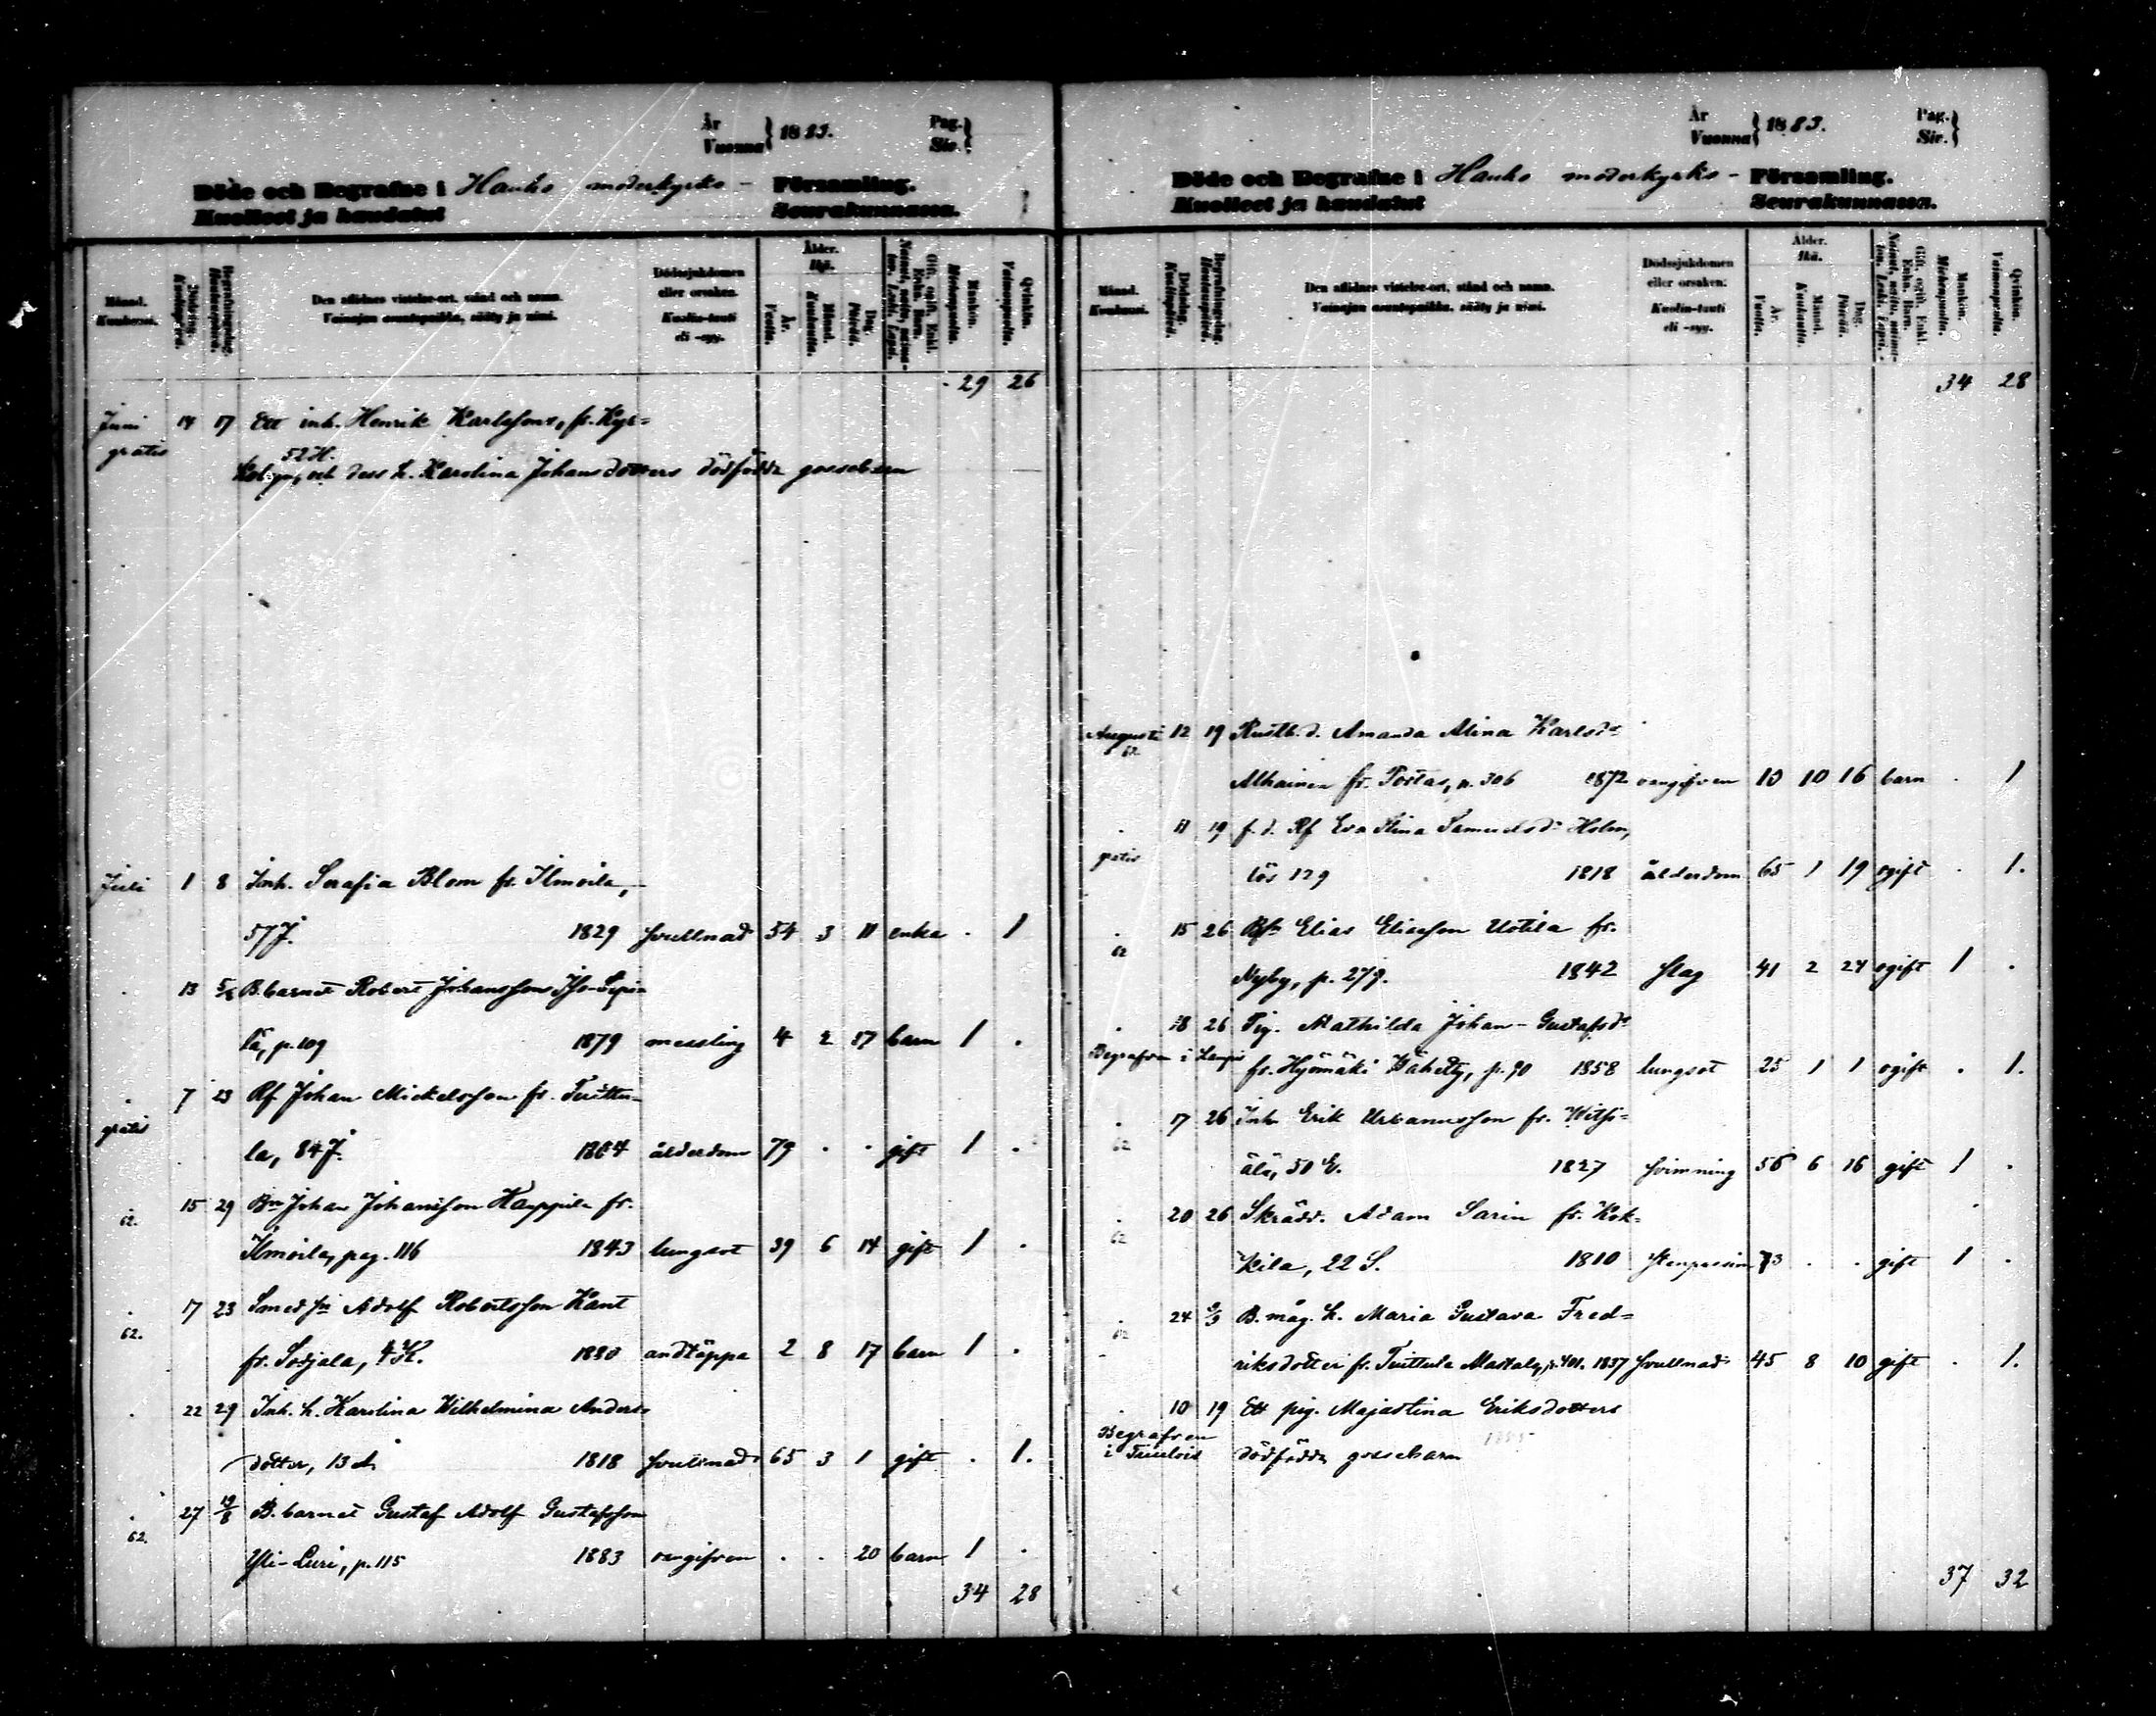 År
Vuonna } 1883.
Pag.
Siv. }
Döde och Begrafne i Hauho moderkyrko- Församling.
Kuolleet ja haudatut Seurakunnassa.
Månad. Kuukausi.
Dödsdag. Kuolinpäivä.
Begrafningsdag. Hautauspäivä.
Den aflidnes vistelse-ort, stånd och namn.
Vainajan asuntopaikka, sääty ja nimi.
Dödssjukdomen eller orsaken.
Kuolin-tauti eli -syy.
Ålder. Ikä.
År. Vuotta.
Månad. Kuukautta.
Dag. Päivää.
Gift, ogift, Enkl. Enka. Barn.
Mankön. Miehenpuolta.
Qvinkön. Vaimonpuolta.
29 26
Juni 14 17 Ett inh. Henrik Karlssons, fr. Kyr=
gratis 52 H.
och dess h. Karolina Johansdotters dödfödda gossebarn
Juli 1 8 Inh. Serafia Blom fr. Ilmoila,
57 J. 1829 svullnad 54 3 11 enka . 1
. 13 5/8 B. barnet Robert Johansson Iso-Sipi=
lä, p. 109 1879 messling 4 2 17 barn 1 .
. 7 23 Rf Johan Mickelsson fr. Tuittu=
gratis
la, 84 J. 1804 ålderdom 79 . . gift 1 .
15 29 Bn Johan Johansson Kauppila fr.
62.
Ilmoila, pag. 116 1843 lungsot 39 6 14 gift 1 .
. 17 23 Smed sn Adolf Robertsson Kant
62.
fr. Sotjala, 4 K. 1880 andtäppa 2 8 17 barn 1 .
. 22 29 Inh. h. Karolina Wilhelmina Anders=
dotter, 13 A. 1818 svullnad 65 3 1 gift . 1.
. 27 19/8 B. barnet Gustaf Adolf Gustafsson
62.
Yli-Luri, p. 115 1883 oangifven . . 20 barn 1 .
34 28
År
Vuonna } 1883.
Pag.
Siv. }
Döde och Begrafne i Hauho moderkyrko- Församling.
Kuolleet ja haudatut Seurakunnassa.
Månad. Kuukausi.
Dödsdag. Kuolinpäivä.
Begrafningsdag. Hautauspäivä.
Den aflidnes vistelse-ort, stånd och namn.
Vainajan asuntopaikka, sääty ja nimi.
Dödssjukdomen eller orsaken.
Kuolin-tauti eli -syy.
Ålder. Ikä.
År. Vuotta.
Månad. Kuukautta.
Dag. Päivää.
Gift, ogift, Enkl. Enka. Barn.
Mankön. Miehenpuolta.
Qvinkön. Vaimonpuolta.
34 28
Augusti 12 19 Rustb. d. Amanda Alina Karlsdr
62
Alhainen fr. Portas, p. 306 1872 oangifven 10 10 16 barn . 1
. 11 19 f. d. Rf Eva Stina Samuelsdr Holm,
gratis
lös 129 1818 ålderdom 65 1 19 ogift . 1.
. 15 26 Bsn Elias Eliasson Uotila fr.
62
Nyby, p. 279. 1842 slag 41 2 24 ogift 1 .
. 18 26 Pig. Mathilda Johan-Gustafsdr
Begrafven i Lampis
fr. Hyömäki Wähetty, p. 90 1858 lungsot 25 1 1 ogift . 1.
. 17 26 Inh Erik Urbanusson fr. Witsi=
62
älä, 50 E. 1827 svimning 56 6 16 gift 1 .
. 20 26 Skrädd. Adam Sarin fr. Kok=
62
kila, 22 S. 1810 stenpassion 73 . . gift 1 .
. 24 2/9 B. måg. h. Maria Gustava Fred=
62
riksdotter fr. Tuittula Mattala, p. 401. 1837 svullnad 45 8 10 gift . 1.
. 10 19 Ett pig. Majastina Eriksdotters
Begrafven
i Tuulois dödfödda gossebarn
37 32